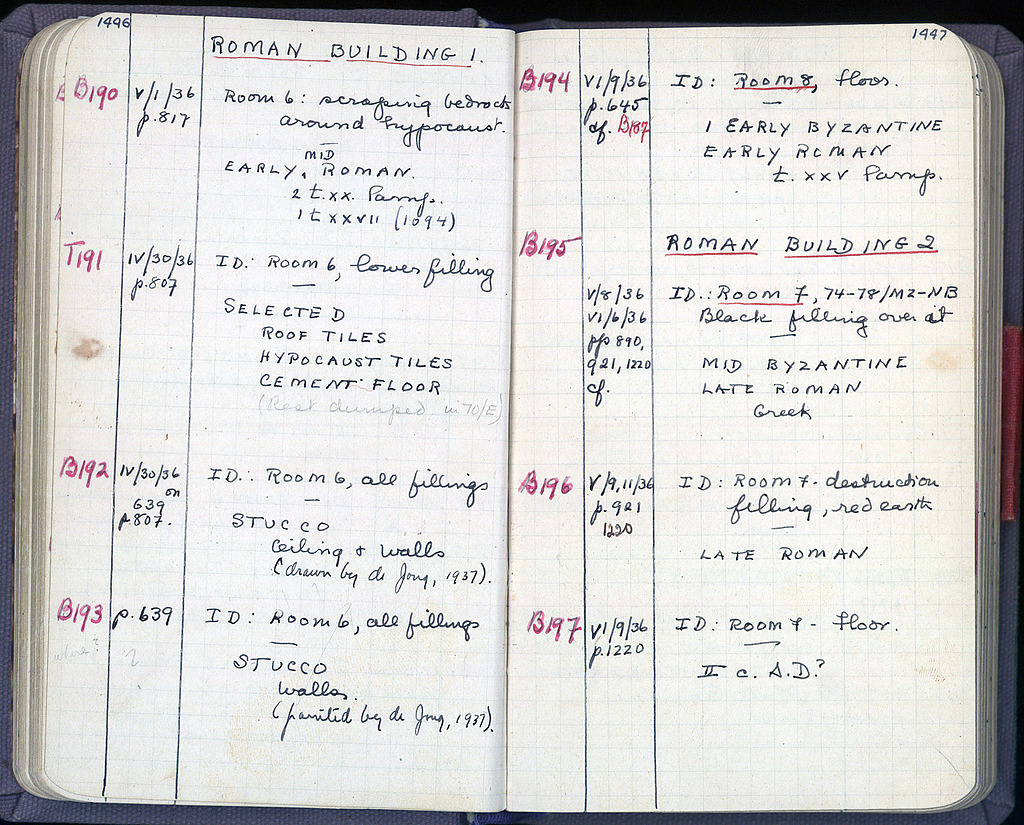 1446
ROMAN BUILDING 1.
B190 V/1/36 Room 6: scraping bedrock
p.817 around hypocaust.
MID
EARLY, ROMAN.
2 t.xx. Pamp.
1 t xxvii (1094)
T191 IV/30/36 ID: Room 6, lower filling
p.807
SELECTED
ROOF TILES
HYPOCAUST TILES
CEMENT FLOOR
(Rest dumped in 70/E)
B192 IV/30/36 ID: Room 6, all fillings
on
639
p.807.
STUCCO
Ceiling & walls
(drawn by de Jong, 1937).
B193 p.639 ID: Room 6, all fillings
where?
STUCCO
walls.
(painted by de Jong, 1937).
1447
B194 VI/9/36 ID: Room 8, floor.
p.645
cf. B187
1 EARLY BYZANTINE
EARLY ROMAN
t. xxv Pamp.
B195 ROMAN BUILDING 2
V/8/36 ID.: Room 7, 74-78/MZ-NB
VI/6/36 Black filling over it
pp 890,
921, 1220 MID BYZANTINE
cf. LATE ROMAN
Greek
B196 V/9,11/36 ID: Room 7 - destruction
p.921 filling, red earth
1220
LATE ROMAN
B197 VI/9/36 ID: Room 7 - floor.
p.1220
II c. A.D.?